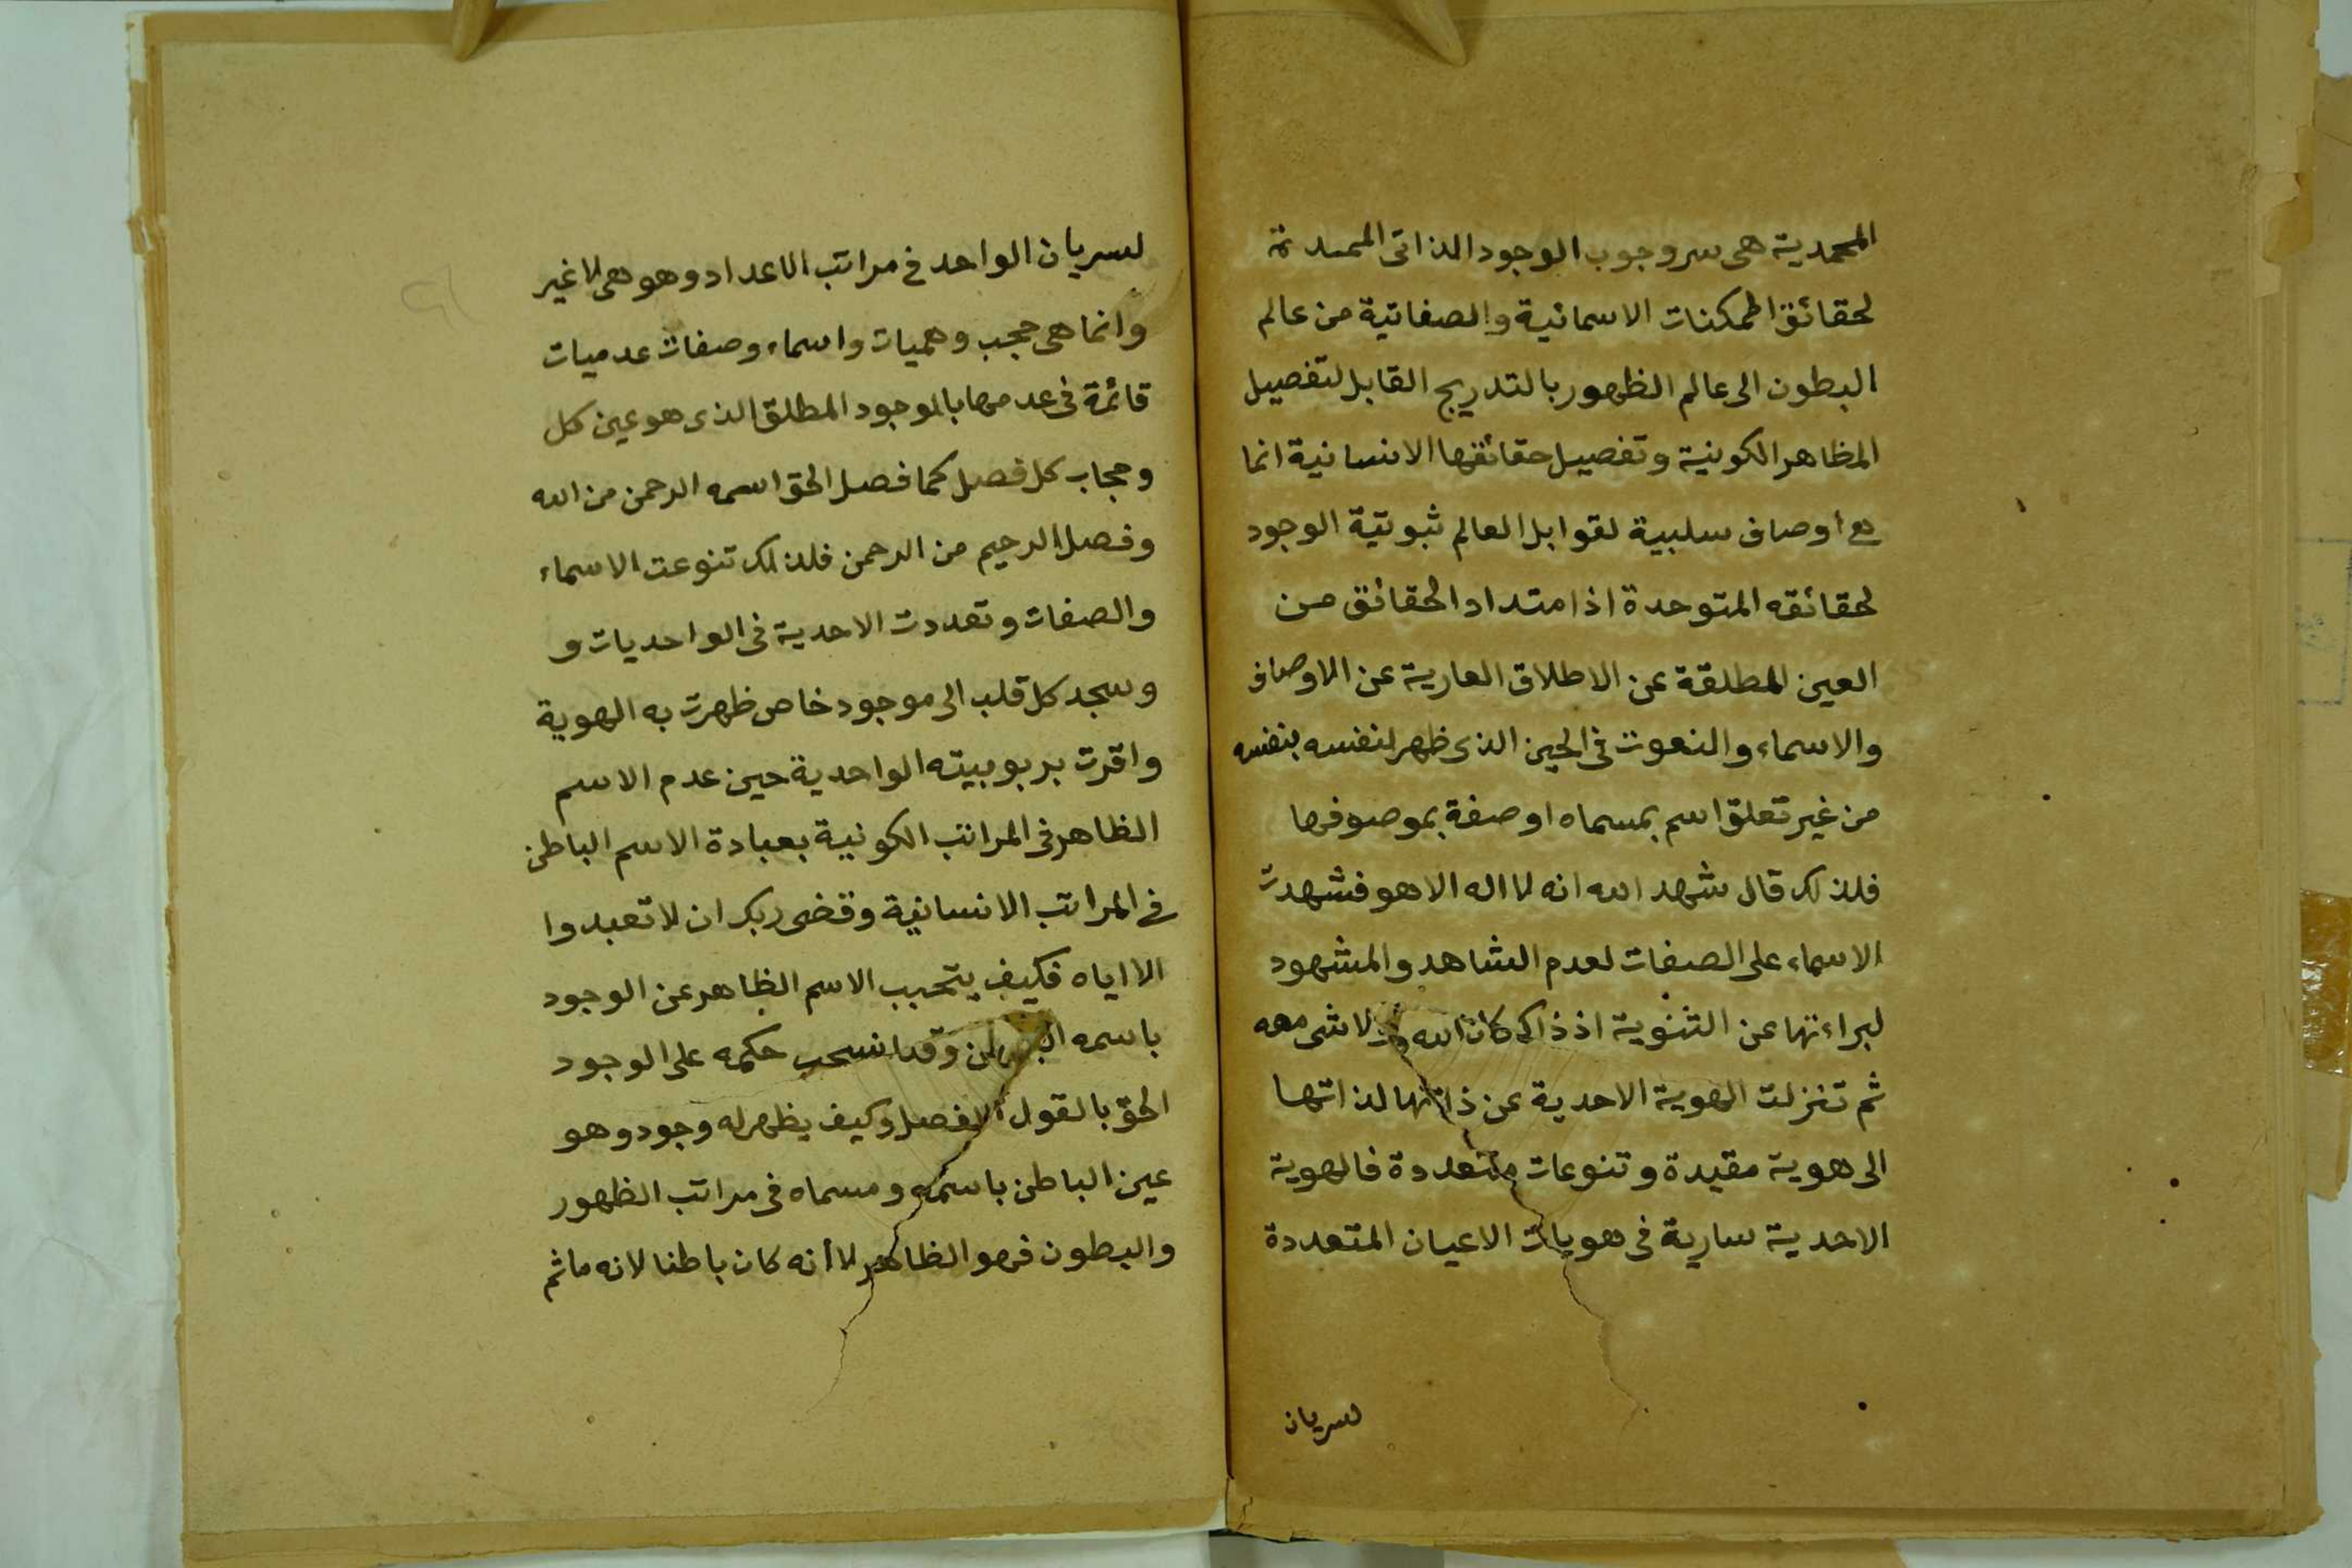 المحمدية هى سر وجوب الوجود الذاتى الممدة
لحقائق الممكنات الاسمائية والصفاتية من عالم
البطون الى عالم الظهور بالتدريج القابل لتفصيل
المظاهر الكونية وتفصيل حقائقها الانسانية انما
هى اوصاف سلبية لقوابل العالم ثبوتية الوجود
لحقائقه المتوحدة اذ امتداد الحقائق من
العين المطلقة عن الاطلاق العارية عن الاوصاف
والاسماء والنعوت فى الحين الذى ظهر لنفسه بنفسه
من غير تعلق اسم بمسماه او صفة بموصوفها
فلذلك قال شهد الله انه لا اله الا هو فشهدت
الاسماء على الصفات لعدم الشاهد والمشهود
لبراءتها عن الثنوية اذ ذاك كان الله ولا شى معه
ثم تنزلت الهوية الاحدية عن ذاتها لذاتها
الى هوية مقيدة وتنوعات متعددة فالهوية
الاحدية سارية فى هويات الاعيان المتعددة
لسريان
لسريان الواحد فى مراتب الاعداد وهو هى لا غير
وانما هى حجب وهميات واسماء وصفات عدميات
قائمة فى عدمها بالموجود المطلق الذى هو عين كل
وحجاب كل فصل كما فصل الحق اسمه الرحمن من الله
وفصل الرحيم من الرحمن فلذلك تنوعت الاسماء
والصفات وتعددت الاحدية فى الواحديات و
وسجد كل قلب الى موجود خاص ظهرت به الهوية
واقرت بربوبيته الواحدية حين عدم الاسم
الظاهر فى المراتب الكونية بعبادة الاسم الباطن
فى المراتب الانسانية وقضى ربك ان لا تعبدوا
الا اياه فكيف يتحبب الاسم الظاهر عن الوجود
باسمه الباطن وقد انسحب حكمه على الوجود
الحق بالقول الفصل وكيف يظهر له وجود وهو
عين الباطن باسمه ومسماه فى مراتب الظهور
والبطون فهو الظاهر لا أنه كان باطنا لانه ما ثم